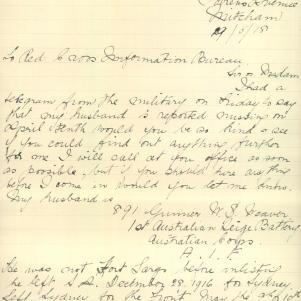 Mitcham
27/5/18
To Red Cross Information Bureau.
Sir or Madam
I had a
telegram from the military on Friday to say
that my husband is reported missing on
April tenth would you be so kind & see
if you could find out anything further
for me I will call at you office as soon
as possible, but if you should here anything
before I come in would you let me know.
My husband is
891 Gunner W. J. Weaver
1st Australian Seige Battery
Australian Corps.
A.I.F.
He was not Fort Largs before enlisting
he left S.A. December 28, 1916 for Sydney,
left Sydney for the front May the